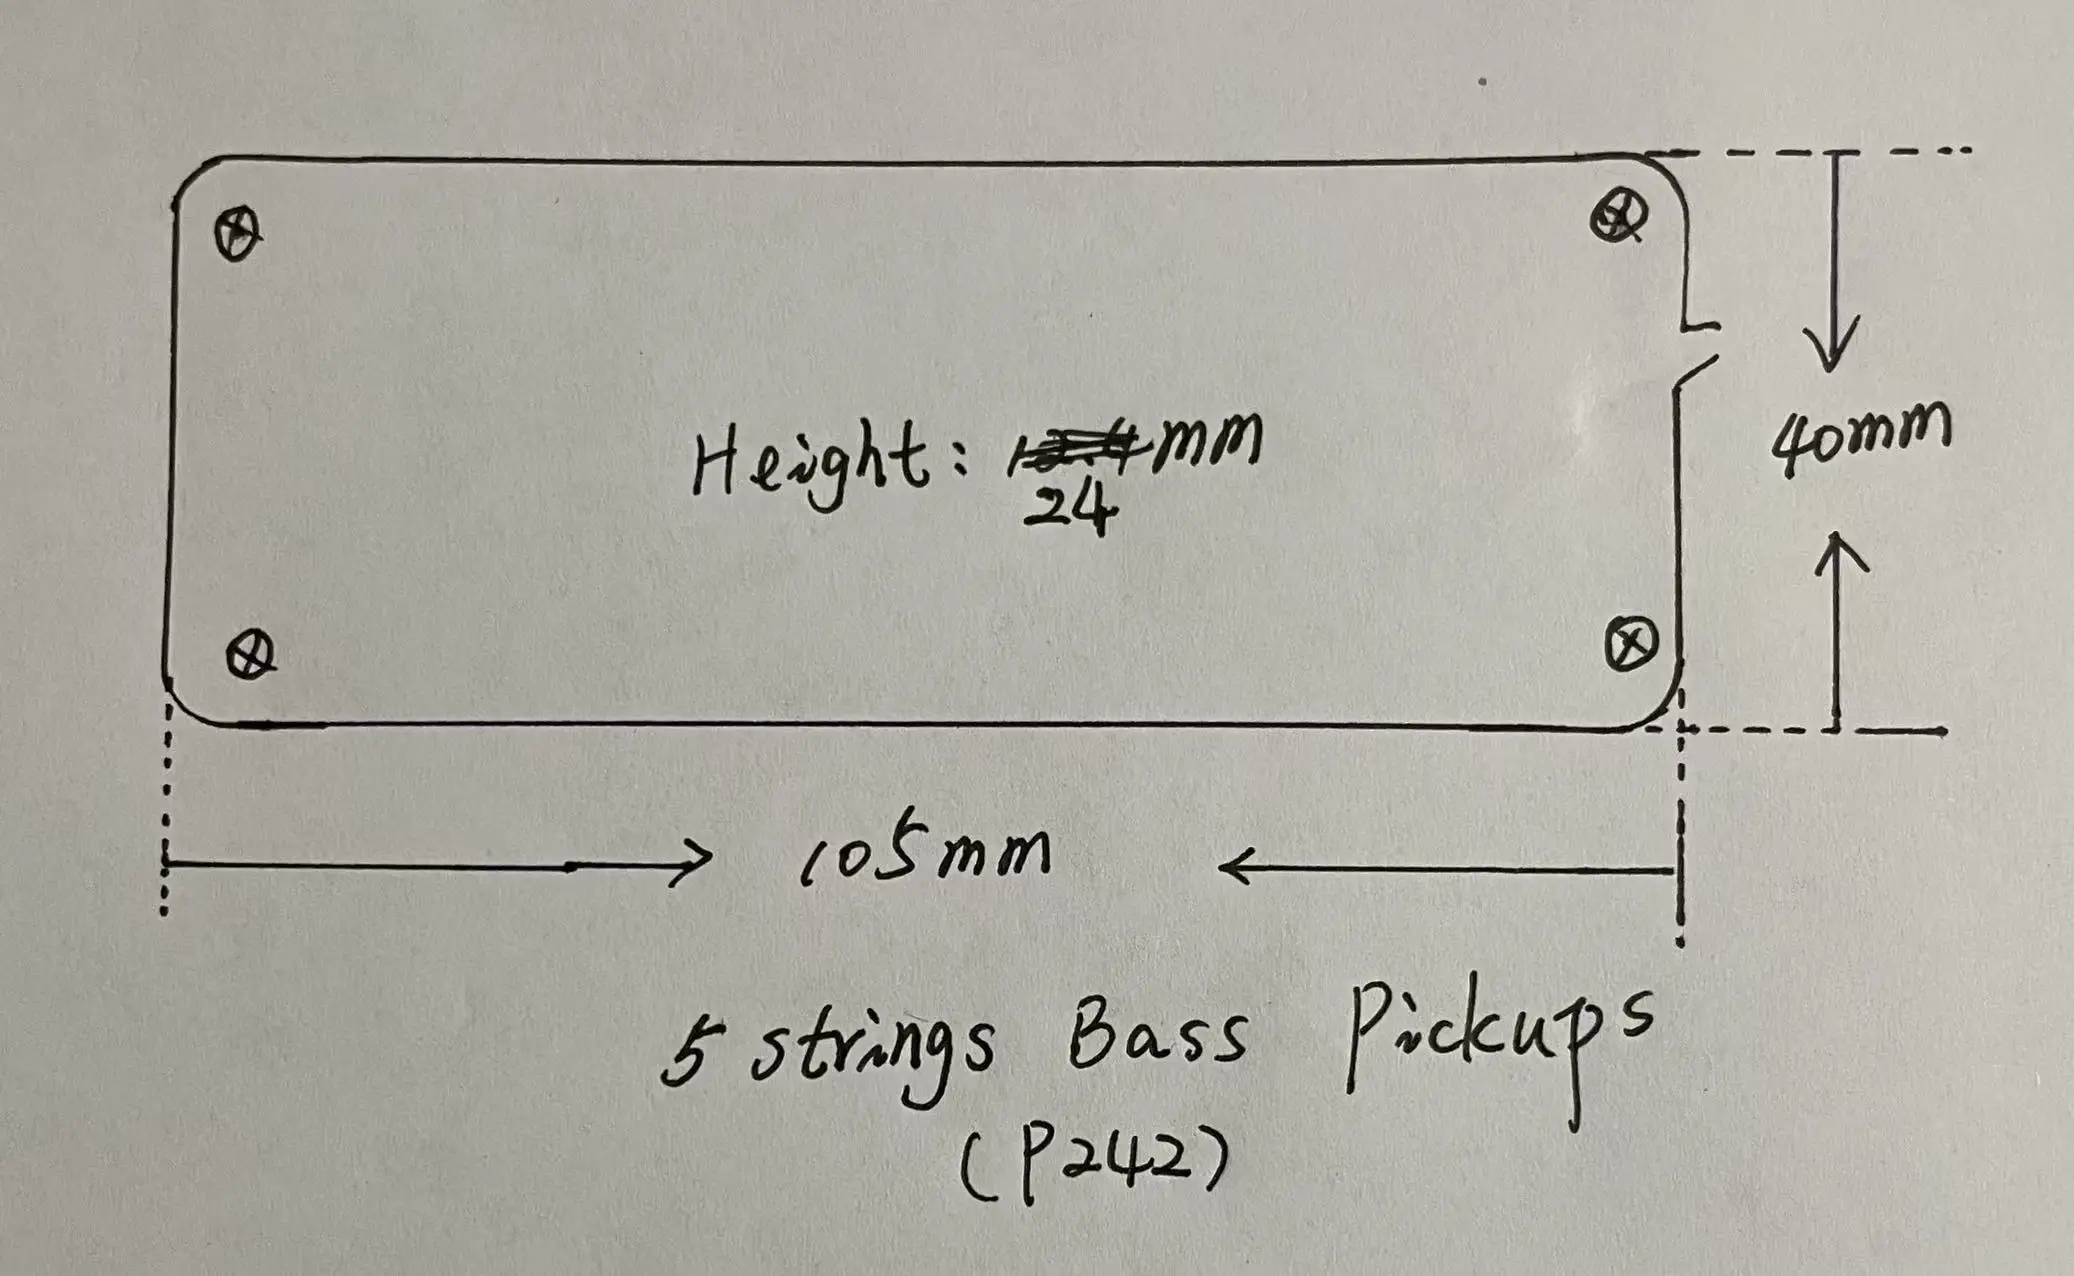 Height: mm
24
40mm
105mm
5 strings Bass Pickups
(P242)